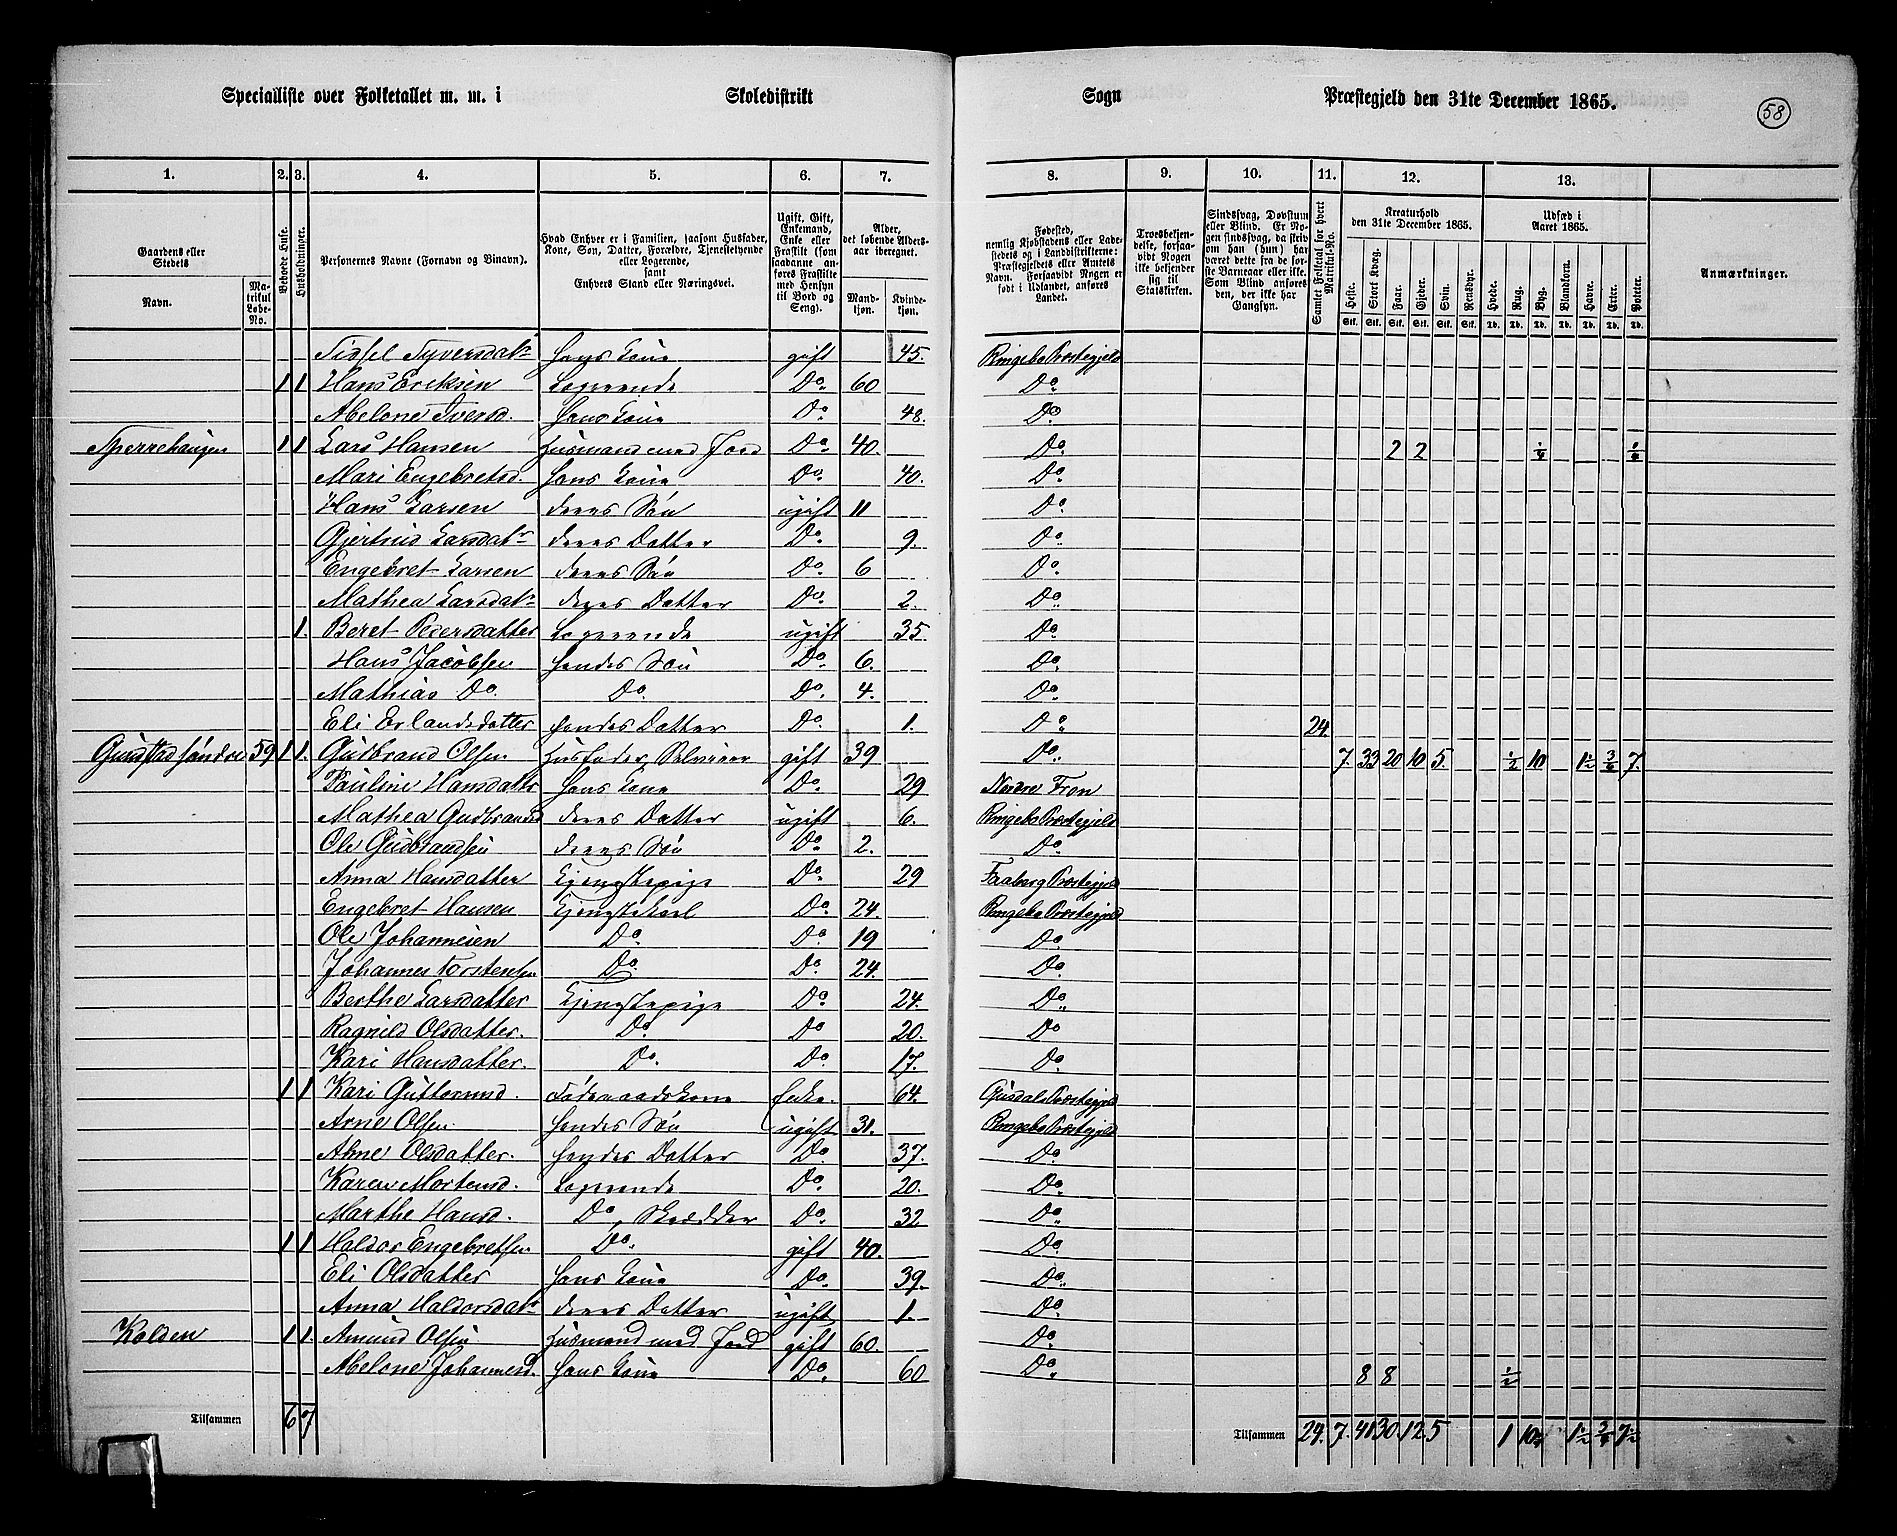 Specialliste over Folketallet m. m. i Skoledistrikt Sogn Præstegjeld den 31te December 1865. 58
1. 2. 3. 4. 5. 6. 7. 8. 9. 10. 11. 12. 13.
Gaardens eller Stedets Navn. Matrikul Løbe-No. Beboede Huse. Husholdninger. Personernes Navne (Fornavn og Binavn). Hvad Enhver er i Familien, saasom Husfader, Kone, Søn, Datter, Forældre, Tjenestetyende eller Logerende, samt Enhvers Stand eller Næringsvei. Ugift, Gift, Enkemand, Enke eller Fraskilte (som saadanne anføres Fraskilte med Hensyn til Bord og Seng). Alder, det løbende Alders-aar iberegnet. Mandkjøn. Kvindekjøn.
Fødested, nemlig Kjøbstadens eller Ladestedets og i Landdistrikterne: Præstegjeldets eller Amtets Navn. Forsaavidt Nogen er født i Udlandet, anføres Landet. Troesbekjendelse, forsaavidt Nogen ikke bekjender sig til Statskirken. Sindssvag, Døvstum eller Blind. Er Nogen sindssvag, da skrives om han (hun) har været det fra de første Barneaar eller ikke. Som Blind anføres den, der ikke har Gangsyn. Samlet Folketal for hvert Matrikul-No. Kreaturhold den 31te December 1865. Udsæd i Aaret 1865. Anmærkninger.
Heste. Stort Kvæg. Faar. Gjeder. Svin. Rensdyr. Hvede. Rug. Byg. Blandkorn. Havre. Erter. Poteter.
Stk. Stk. Stk. Stk. Stk. Stk. Td. Td. Td. Td. Td. Td. Td.
Sissel Syversdatr hans Kone gift 45. Ringebo Præstegjeld
1 1 Hans Eriksen Logerende Do. 60 Do.
Abelone Iversd. hans Kone Do 48. Do.
Sperrehaugen 1 1 Lars Hansen Husmand med Jord Do. 40. Do. 2 2 1/4 1/4
Mari Engebretsd. hans Kone Do. 40. Do.
Hans Larsen deres Søn ugift 11 Do.
Gjertrud Larsdatr deres Datter Do. 9. Do.
Engebret Larsen deres Søn Do. 6 Do.
Mathea Larsdatr deres Datter Do. 2. Do.
1. Beret Pedersdatter Logerende ugift 35. Do.
Hans Jacobsen hendes Søn Do. 6. Do.
Mathias Do. Do. Do. 4. Do.
Eli Erlandsdatter hendes Datter Do. 1. Do. 24.
Gunstad søndre 59 1 1. Gudbrand Olsen Husfader, Selveier gift 39 Do. 7. 33 20 10 5. 1/2 10 1 1/2 3/4 7.
Pauline Hansdatter hans Kone Do. 29 Nordre Fron
Mathea Gudbrandsd deres Datter ugift 6. Ringebo Præstegjeld
Ole Gudbrandsen deres Søn Do. 2. Do.
Anna Hansdatter Tjenestepige Do. 29 Faaberg Præstegjeld
Engebret Hansen Tjenestekarl Do. 24. Ringebo Præstegjeld
Ole Johannesen Do. Do. 19 Do.
Johannes Torstensen Do. Do. 24. Do.
Berthe Larsdatter Tjenestepige Do. 24. Do.
Ragnild Olsdatter. Do. Do 20. Do
Kari Hansdatter. Do. Do. 17. Do.
1 1 Kari Guttormsd. Føderaadskone Enke. 64. Gusdals Præstegjeld
Arne Olsen hendes Søn ugift 31. Ringebo Præstegjeld
Anne Olsdatter. hendes Datter Do. 37. Do.
Karen Mortensd. Logerende Do. 20. Do.
Marthe Hansd. Do, Skrædder Do. 32 Do.
1 1 Haldor Engebretsen Do. gift 40. Do.
Eli Olsdatter hans Kone Do. 39. Do.
Anna Haldorsdatr deres Datter ugift 1. Do.
Kolden 1 1. Amund Olsen Husmand med Jord gift 60. Do.
Abelone Johannesd. hans Kone Do. 60 Do. 8 8 1/2
Tilsammen 6 7 Tilsammen 24. 7. 41 30. 12 5 1 10 1/4 1 1/2 3/4 7 1/2